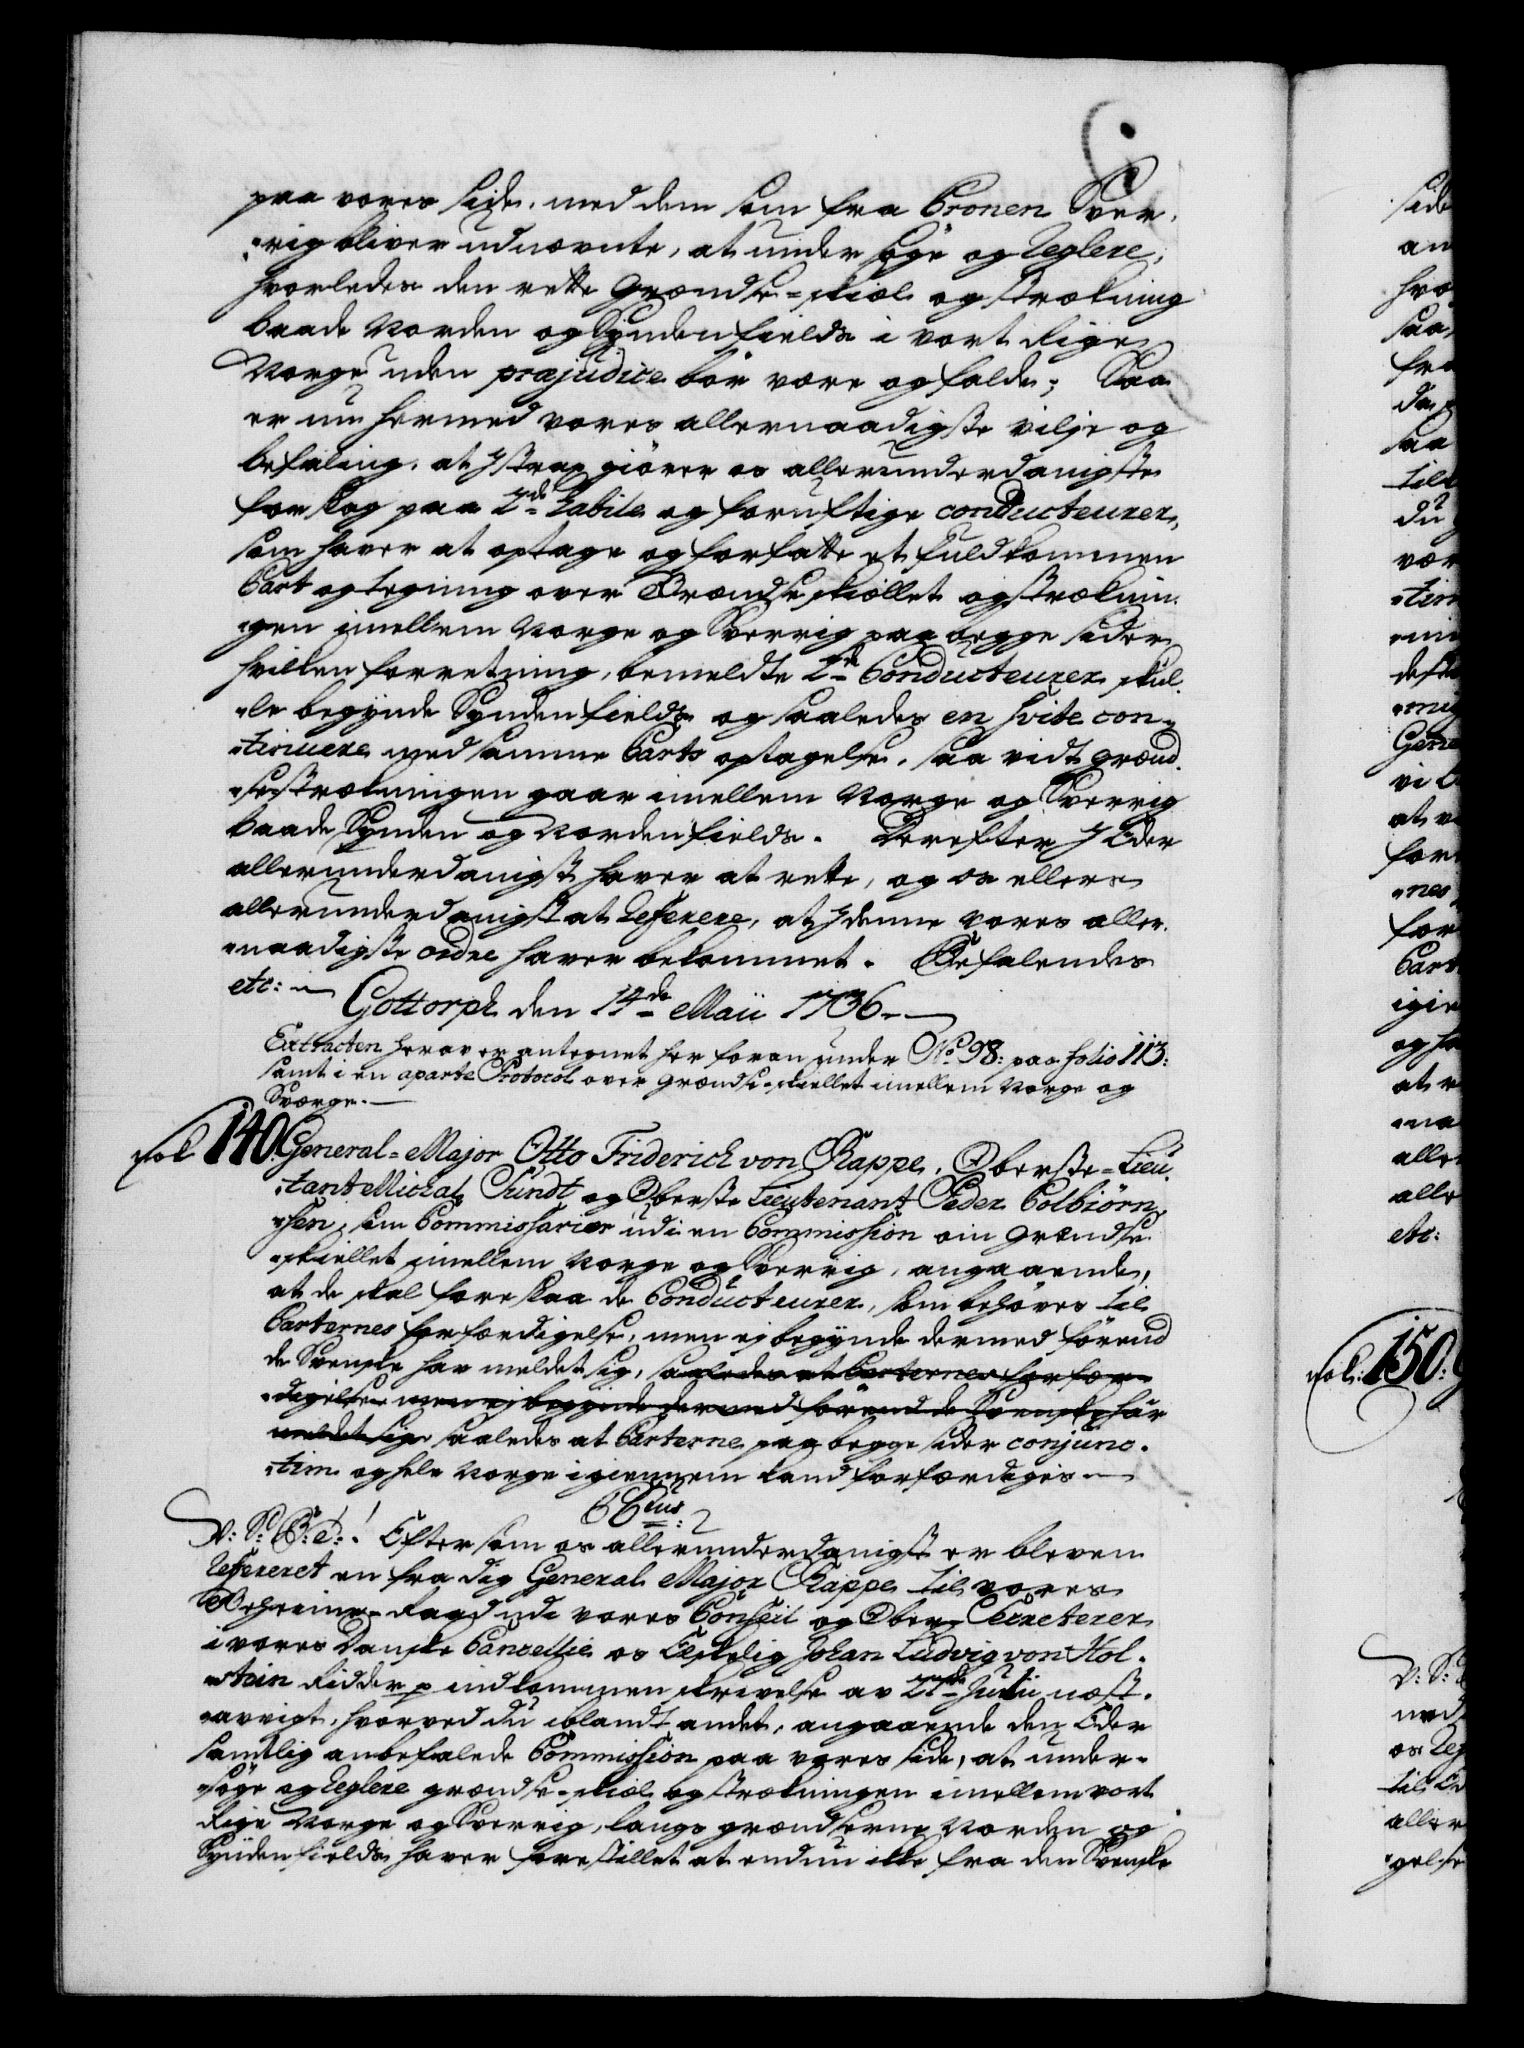 paa vores side, med dem som fra Cronen Sver,
"rig bliver udnævnte, at under søge og Reglere,
hvorledes den rette Grændse-skiæl og strækning
baade Norden og Syndenfields i vort Rige
Norge uden præjudice bør være og falde; Saa
er nu hermed vores allernaadigste vilje og
befaling, at I strax giører os allerunderdanigste
forslag paa 2de habile og fornuftige conducteurer,
som haver at optage og forfatte et fuldkommen
Cart og tegning over Grændse skiællet og stræknin,
"gen imellem Norge og Sverrig paa begge sider
hvilken forretning, bemeldte 2de Conducteurer skul,
"le begynde Syndenfields og saaledes en suite con,
"tinuere med samme Carts optagelse, saa vidt grænd,
"se strækningen gaar imellem Norge og Sverrig
baade Synden og Nordenfields. Derefter I Eder
allerunderdanigst haver at rette, og os ellers
allerunderdanigst at Referere, at I denne vores aller,
"naadigste ordre haver bekommet. Befalendes
etc:
Gottorph den 14de Maii 1736
Extracten herav er antegnet her foran under No 98: paa folio 113:
samt i en aparte Protocol over grændse-skiellet imellem Norge og
Sverge.
No 140. General-Major Otto Friderich von Rappe, Oberste-Lieu,
"tant Michal Sundt og Oberste Lieutenant Peder Colbiørn,
"sen, som Commissarier udi en Commission om Grændse
"skiellet imellem Norge og Sverrig, angaaende,
at de skal foreslaa de Conducteurer, som behøves til
Carternes forfærdigelse, men ej begynde dermed førend
de Svenske har meldet sig, saaledes at Carternes forfær,
"digelse men ej begynde dermed førend de Svenske har
meldet sig saaledes at Carterne paa begge sider conjunc,
"tim og hele Norge igiennem land forfærdiges
C 6tus
V: S: G: T: ! Eftersom os allerunderdanigst er bleven
Refereret en fra dig General Major Rappe til vores
Geheime-Raad udi vores Conseil og Ober-Secreterer
i vores Danske Cancellie os Elskelig Johan Ludvig von Hol,
"stein Ridder p indkommen skrivelse av 27de Junii næst,
"avvigt, hvorved du iblandt andet, angaaende den Eder
samtlig anbefalede Commission paa vores side, at under,
"søge og Reglere grændse-skiæl og strækningen imellem vort
Rige Norge og Sverrig, langs grændserne Norden og
Syndenfields haver forestillet at endnu ikke fra den Svenske
nok: 150: